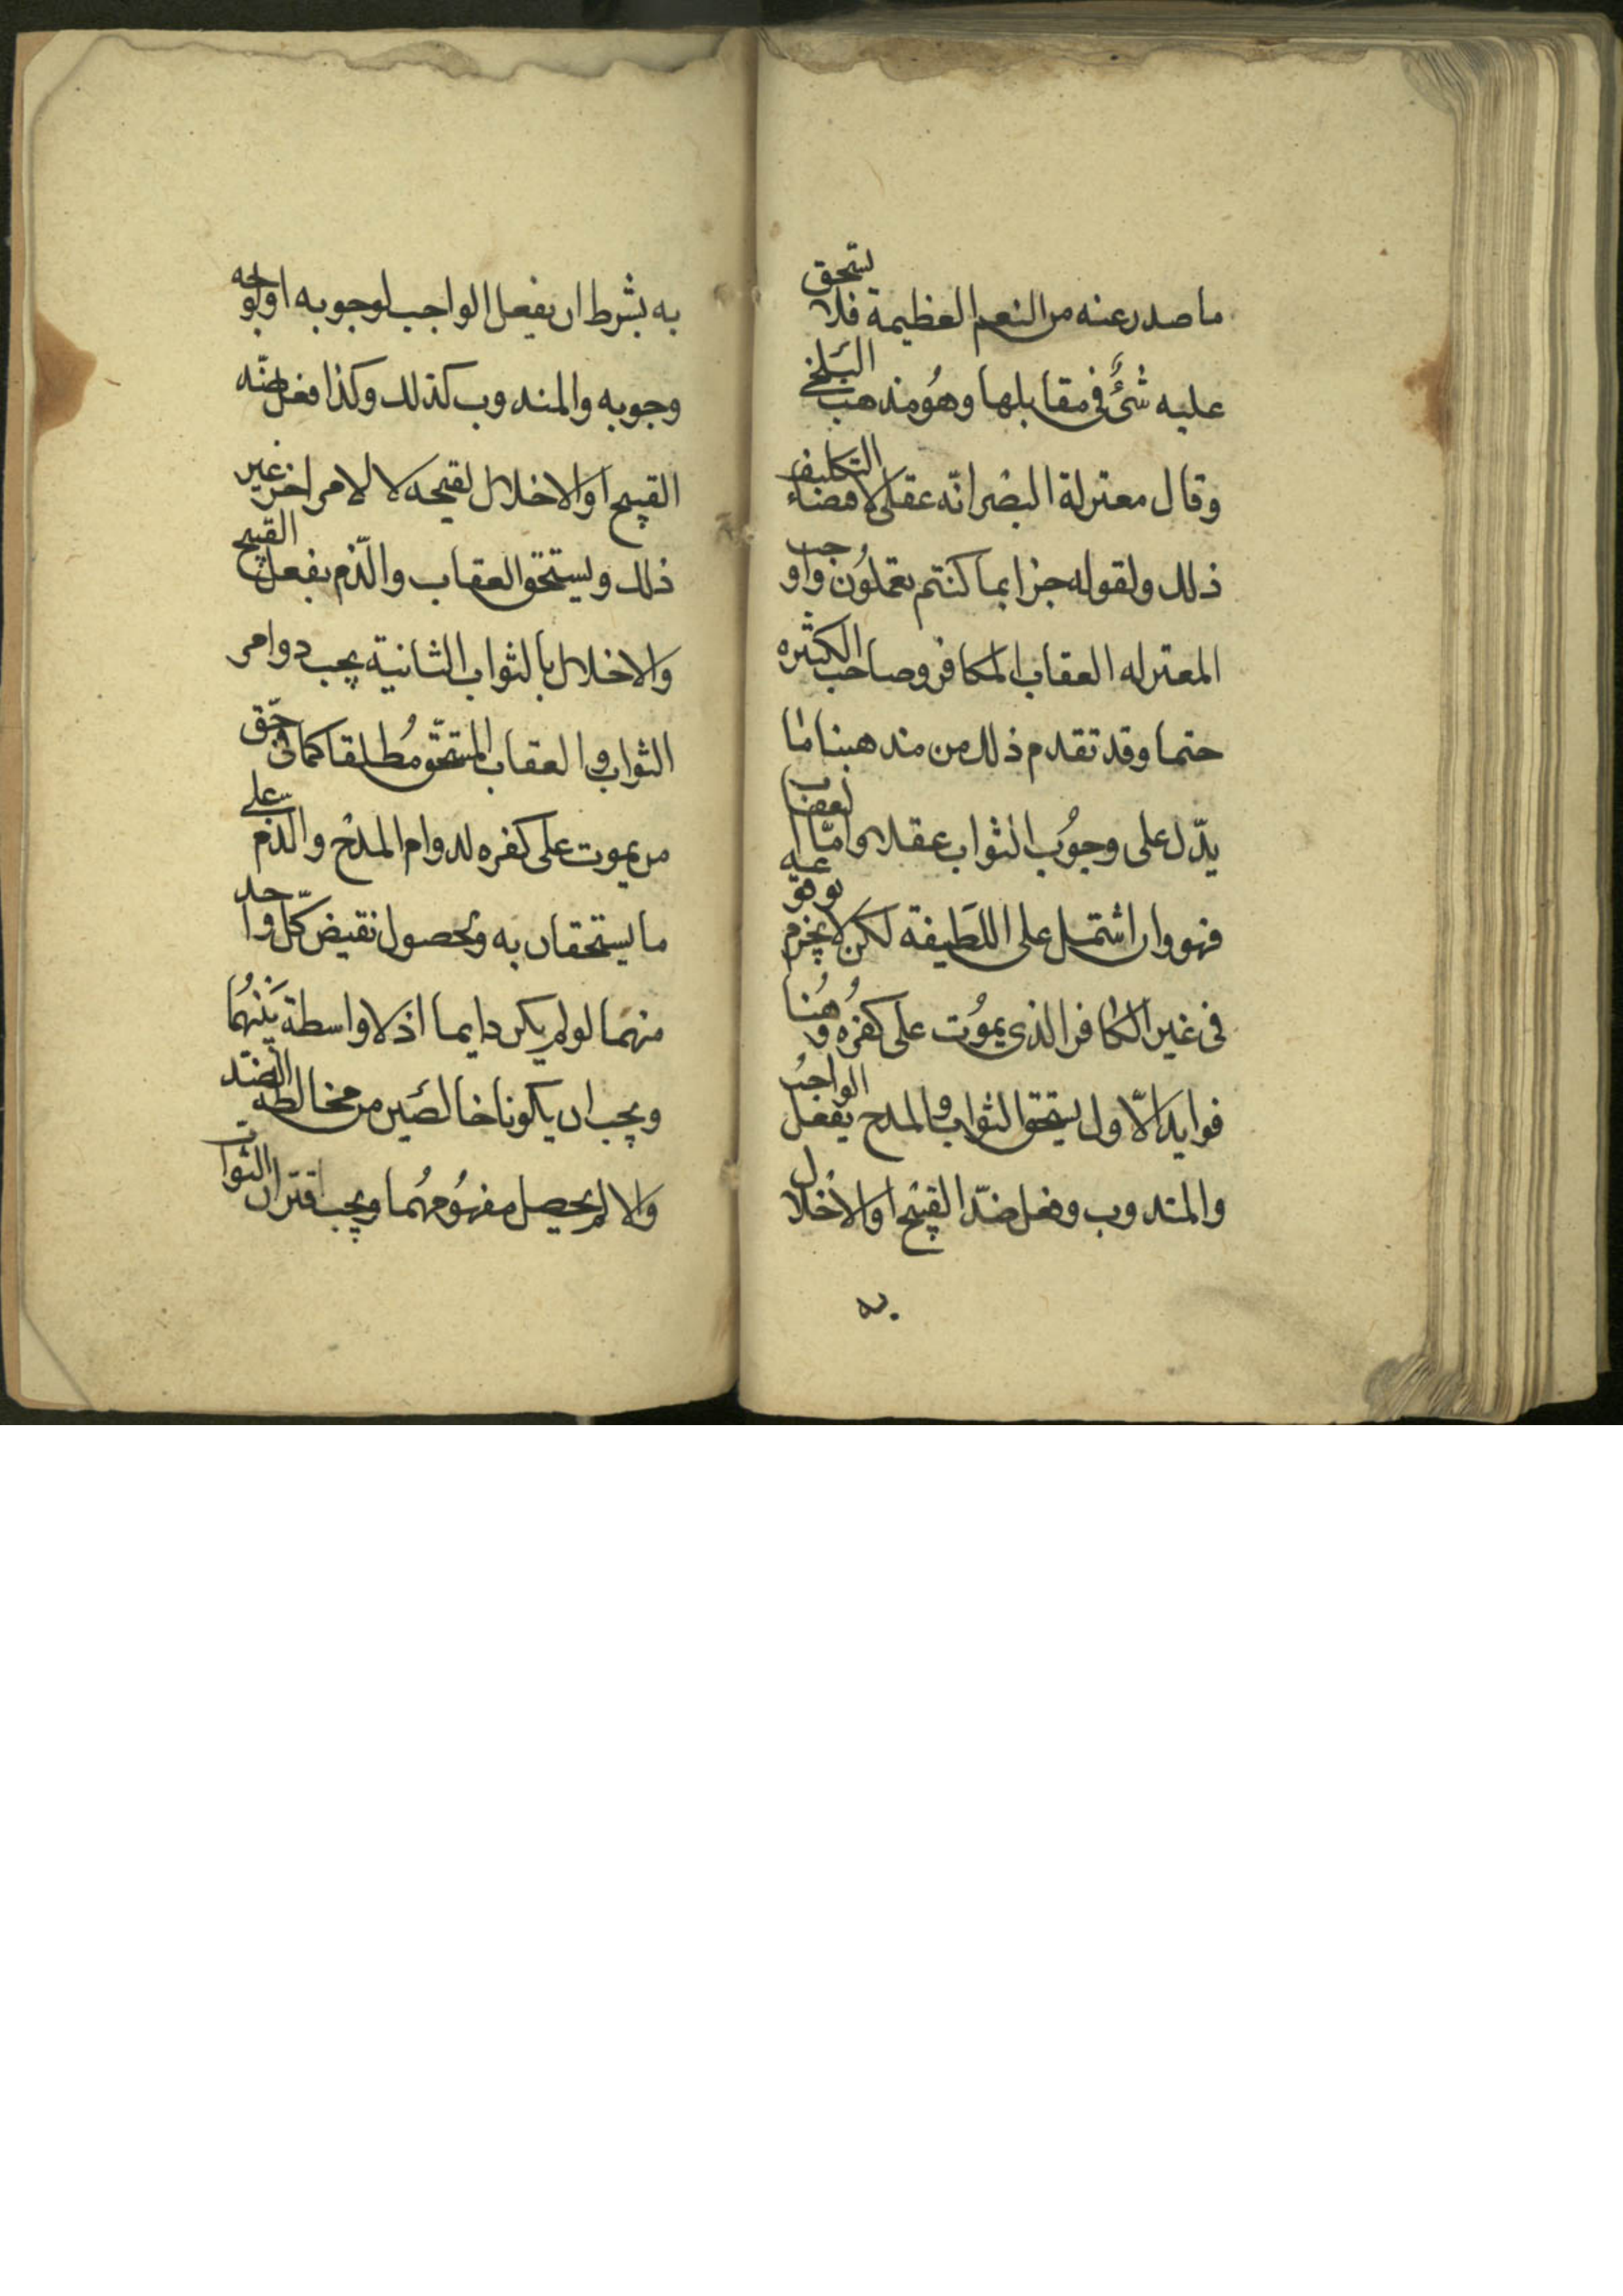 ما صدر عنه من النعم العظيمة فلا يستحق
عليه شئ فى مقابلها وهو مذهب البلخى
وقال معتزلة البصرانه عقلى لاقتضاء التكليف
ذلك ولقوله جزا بما كنتم تعملون واوجب
المعتزله العقاب للكافر وصاحب الكثيره
حتما وقد تقدم ذلك من مذهبنا ما
يدّل على وجوب الثواب عقلا واما العقاب
فهو وان اشتمل على اللطيفة لكن لا يجزم بوقوعه
فى غير الكافر الذى يموت على كفره وهنا
فوايد الاول يستحق الثواب والمدح بفعل الواجب
والمندوب وفعل ضدّ القبيح او الاخلال
به
به بشرط ان يفعل الواجب لوجوبه او لوجه
وجوبه والمندوب كذلك وكذا فعل ضدّه
القبيح او الاخلال لقبحه لا لامر اخر غير
ذلك ويستحق العقاب والذّم بفعل القبيح
والاخلال بالثواب الثانية يجب دوام
الثواب والعقاب المستحق مطلقا كما فى حقّ
من يموت على كفره لدوام المدح والذم على
ما يستحقان به ويحصول نقيض كلّ واحد
منهما لو لم يكن دايما اذ لا واسطة بينهما
ويجب ان يكونا خالصين من مخالطة الضدّ
والا لم يحصل مفهومهما ويجب اقتران الثواب